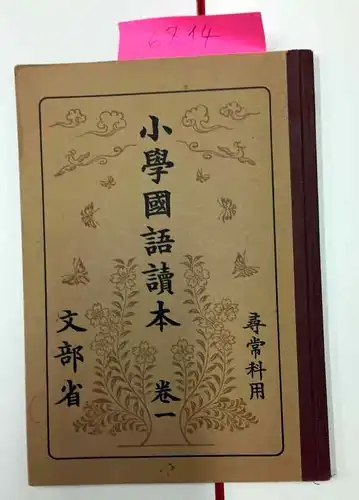 6214
小學國語讀本 卷一
尋常科用
文部省